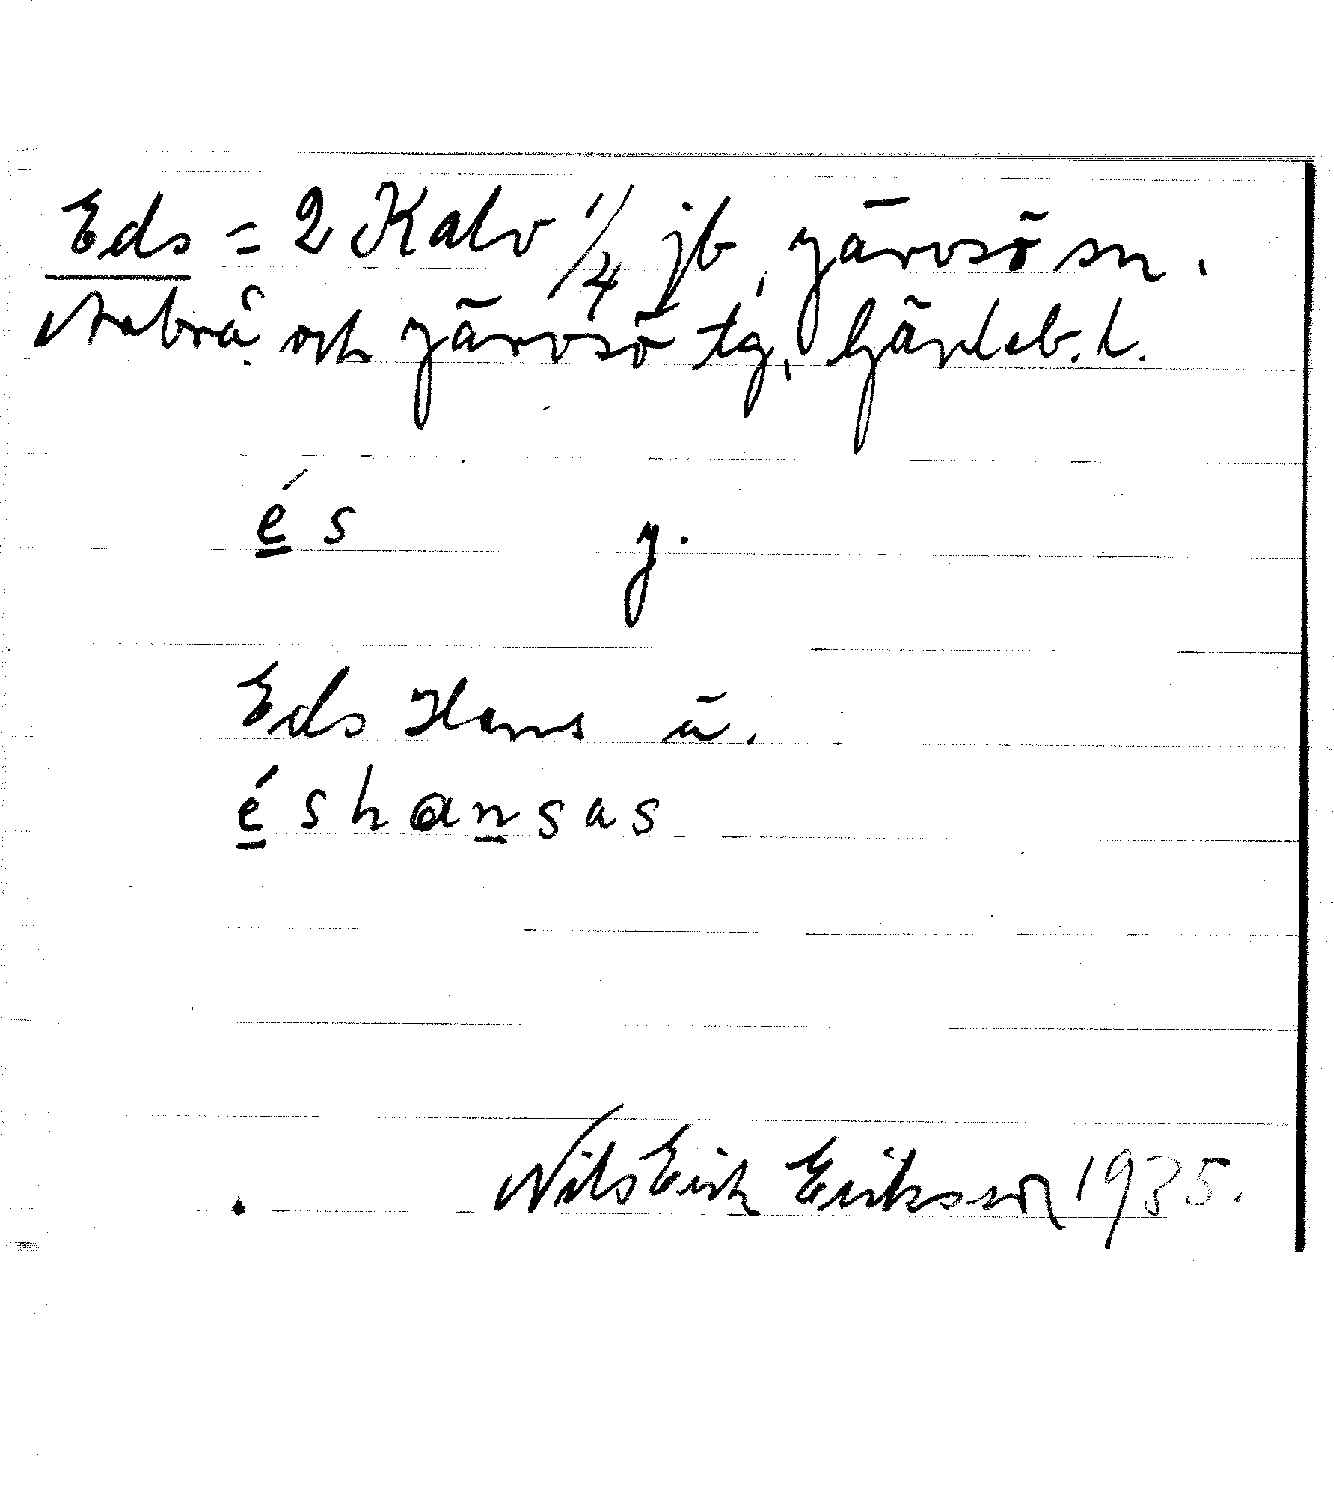 Eds = 2 Kalv 1/4 jb, Järvsö sn.
Arbrå och Järvsö tg, Gävleb. l.
és y.
Eds Hans ä.
éshansas
Nils Erik Eriksson 1935.